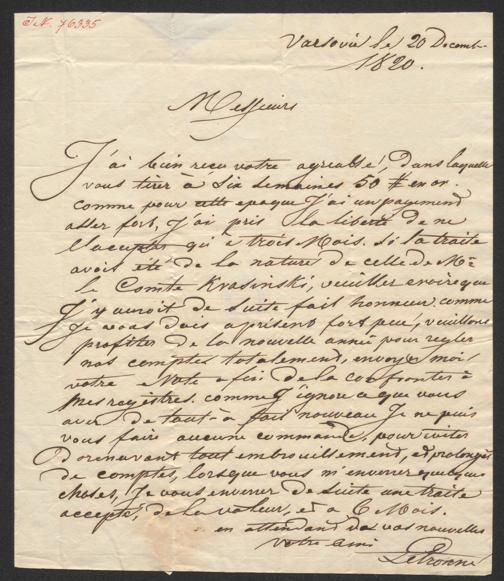 J. N. 76335
Varsovie le 20 Decemb.
1820.
Messieurs
J'ai bien reçu votre agréable, Dans laquelle
vous tirér à Six Semaines 50 # en or.
comme pour cette epoque J'ai un payement
asser fort, J'ai pris la liberté de ne
l'accepter qu'à trois Mois. Si la traite
avois été de la nature de celle de Mr
le Comte Krasinski, veuiller croire que
J'y auroit de Suite fait honneur, comme
Je vous dois aprésent fort peu, veuillons
profiter de la nouvelle année pour regler
nos comptes totalement, envoyer mois
votre Note afin de la confronter à
mes registres. comme J'ignore ce que vous
aver de tout-à fait nouveau Je ne puis
vous faire aucune commande, pour eviter
Dorenavant tout embrouillement, et prolonger
de comptes, lorsque vous m'enverrer quelque
choses, Je vous enverrer de Suite une traite
accepté, de la valeur, et à 6 Mois.
en attendand vos nouvelles
Votre ami
Letronne